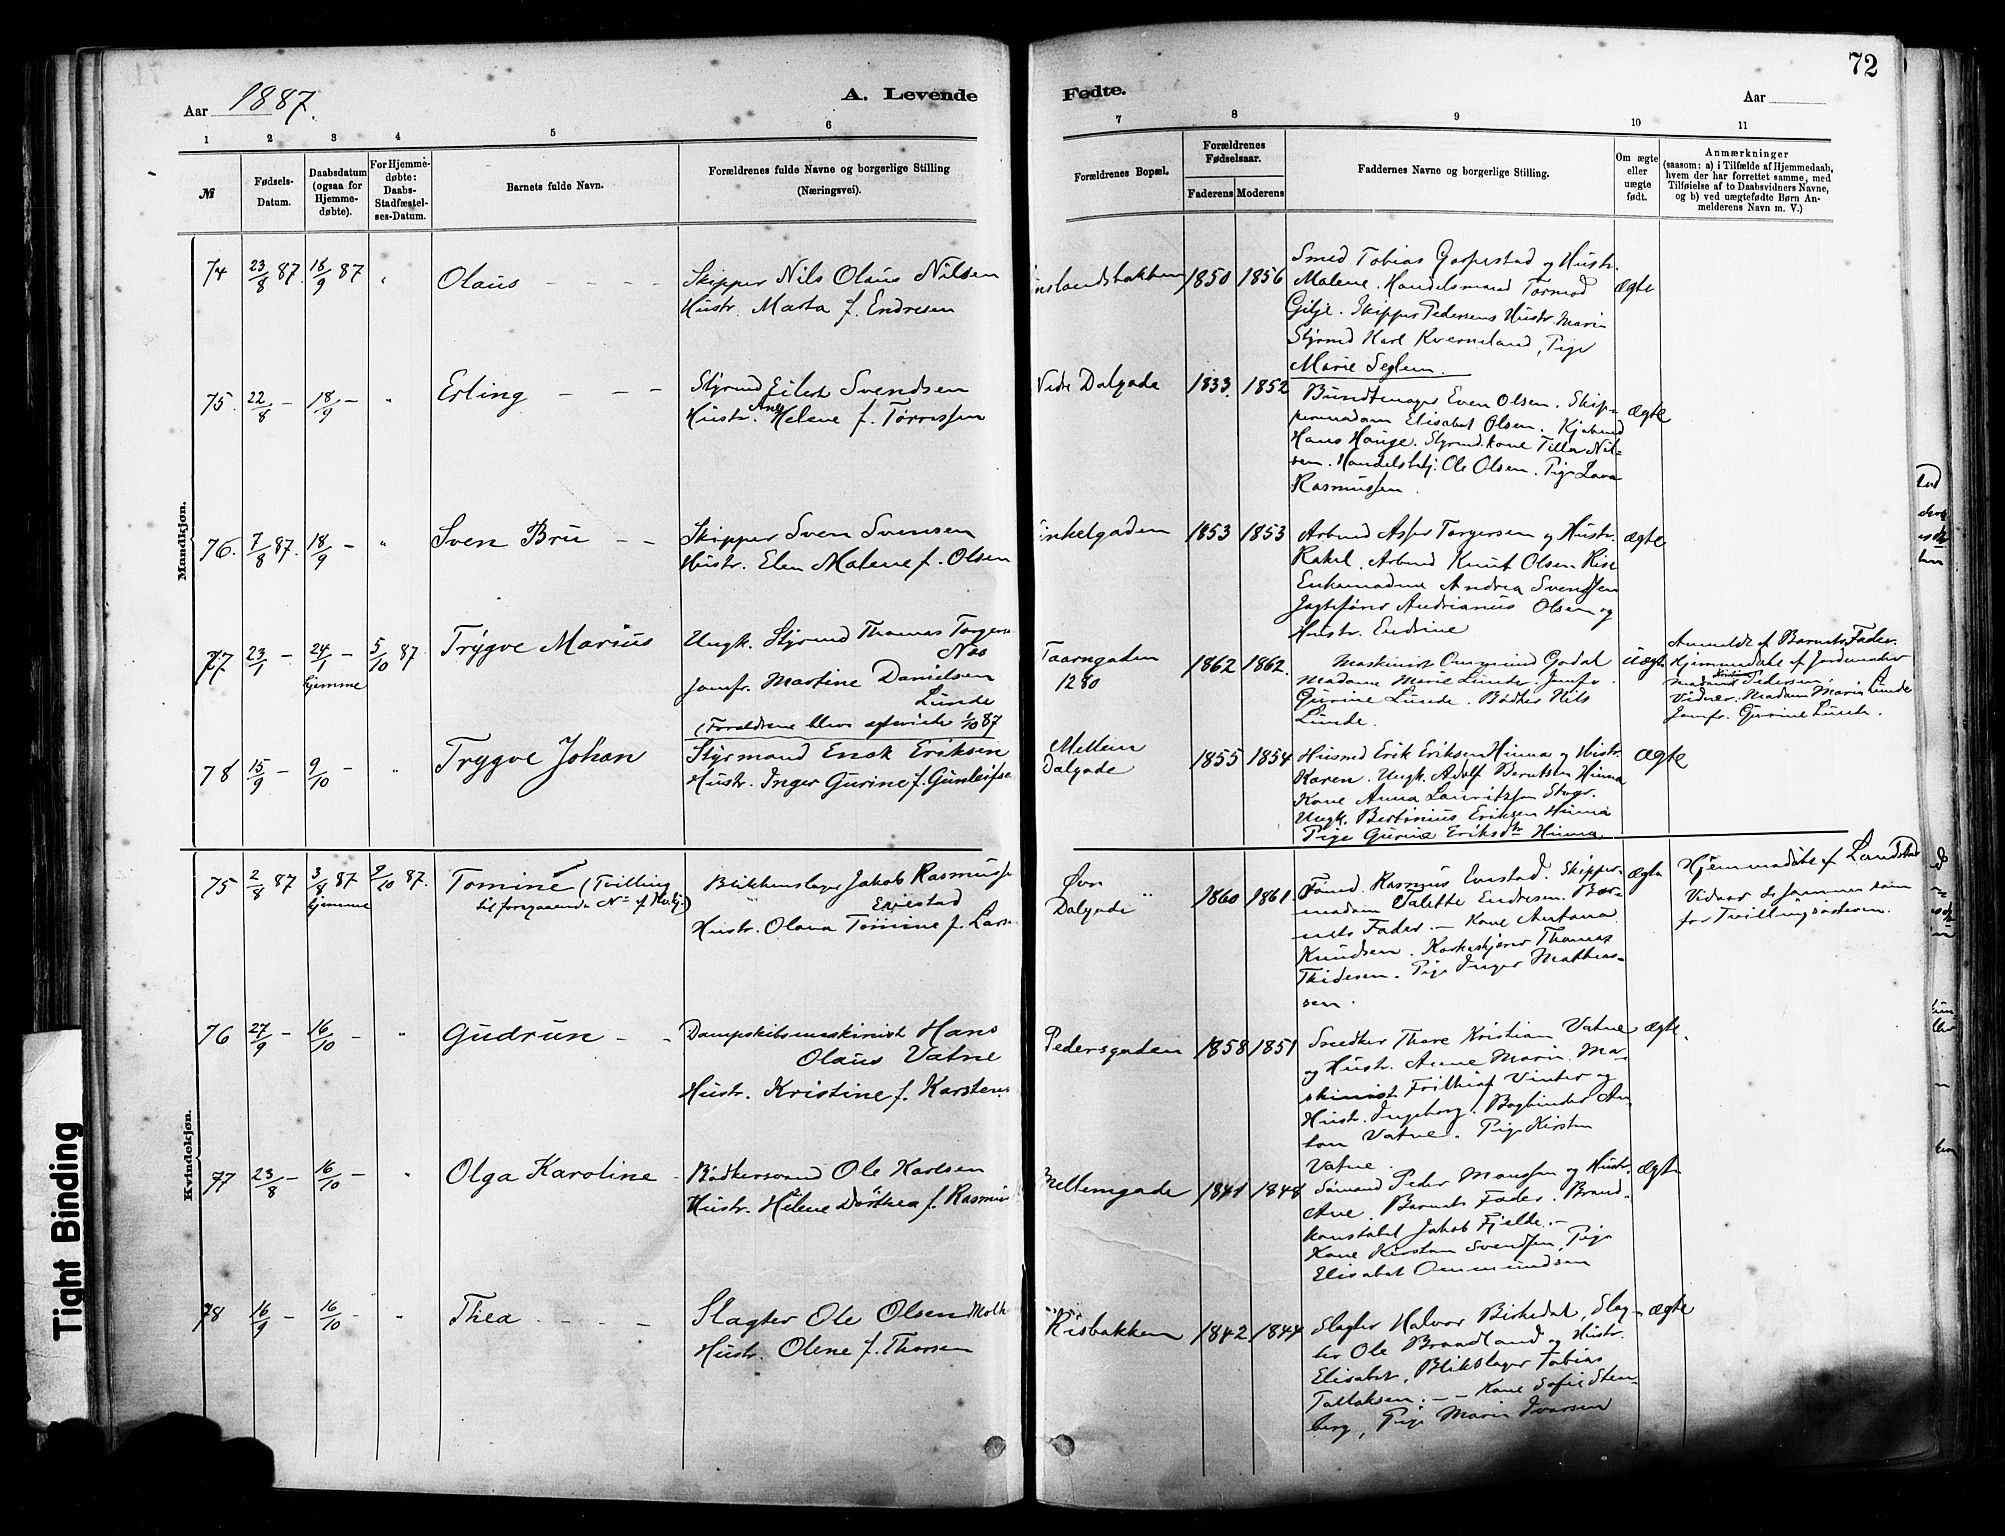 72
Aar 1887.
A. Levende
Fødte.
Aar
1 2 3 4 5 6 7 8 9 10 11
№
Fødsels-Datum.
Daabsdatum (ogsaa for Hjemmedøbte).
For Hjemmedøbte: Daabs-Stadfæstelses-Datum.
Barnets fulde Navn.
Forældrenes fulde Navne og borgerlige Stilling (Næringsvei).
Forældrenes Bopæl.
Forældrenes Fødselsaar.
Faderens Moderens
Faddernes Navne og borgerlige Stilling.
Om ægte eller uægte født.
Anmærkninger
(saasom: a) i Tilfælde af Hjemmedaab,
hvem der har forrettet samme, med
Tilføielse af to Daabsvidners Navne,
og b) ved uægtefødte Børn Anmelderens Navn m. V.)
Mandkjøn.
74 23/8 87. 18/9 87 " Olaus
Skipper Nils Olaus Nilsen
Hustr. Marta f. Endresen
1850 1856
Smed Tobias Gaspestad og Hustr.
Malene. Handelsmand Tormod
Gilje. Skipper Pedersens Hustr. Marie
Styrmd Karl Kverneland, Pige
Marie Seglem.
ægte
75. 22/8 – 18/9 – " Erling
Styrmd Eilert Svendsen
Hustr. Ane Helene f. Tørressen
Nedre Dalgade 1833. 1852
Bundtmager Even Olsen. Skip-
permadam Elisabet Olsen. Kjøbmd
Hans Hauge. Styrmd.kone Tilla Nil-
sen. Handelsbetj. Ole Olsen. Pige Lava
Rasmussen.
ægte
76. 7/8 87. 18/9 – " Sven Bru
Skipper Sven Svensen
Hustr. Elen Malene f. Olsen
inkelgaden 1853 1853
Arbmd Asser Torgersen og Hustr.
Rakel. Arbmd Knut Olsen Rise
Enkemadme Andrea Svendsen
Jagtefører Andrianus Olsen og
Hustr. Endrine
ægte
77 23/1 – 24/1 – hjemme 5/10 87. Trygve Marius
Ungk. Styrmd Thomas Torgers
Næs
Jomfr. Martine Danielsen
Lunde
(Forældrene bleve ægteviede 1/10 87
Taarngaden
1280
1862 1862.
Maskinist Ommund Godal
Madame Marie Lunde. Jomfr.
Gurine Lunde. Bødker Nils
Lunde.
uægte
Anmeldt af Barnets Fader.
Hjemmedøbt af Jordemoder
Madame Kristine Pedersen.
Vidner. Madam Marie Lunde
Jomfr. Gurine Lunde.
78 15/9 – 9/10 – " Trygve Johan
Styrmand Enok Eriksen
Hustr. Inger Gurine f. Gunleifse
Mellem
Dalgade
1855 1854
Husmd Erik Eriksen Hinna og Hustr.
Karen. Ungk. Adolf Berntsen Hinna
Kone Anna Lauritzsen
Ungk. Bertinius Eriksen Hinna
Pige Gurine Eriksdtr Hinna
ægte
Kvindekjøn.
75 2/8 87 3/8 87 hjemme 9/10 87. Tomine (Tvilling
til foregaaende № af Kvkj.)
Blikkenslager Jakob Rasmusse
Evestad
Hustr. Olava Tomine f. Lars
Øvre
Dalgade
1860 1861
Fømd. Rasmus Evestad. Skipper-
madam Talette Endresen. Bar-
nets Fader. – Kone Antona
Knudsen. Karkeskjærer Thomas
Thidesen. Pige Inger Mathias-
sen.
ægte
Hjemmedøbt af
Vidner de samme som
for Tvillingsøsteren.
76 27/9 – 16/10 – " Gudrun
Dampskibsmaskinist Hans
Olaus Vatne
Hustr. Kristine f. Karstens
Pedersgaden 1858 1851
Snedker Thore Kristian Vatne
og Hustr. Anne Marie. Ma-
skinist Frithiof Vinter og
Hustr. Ingeborg. Bogbinder An-
ton Vatne. Pige Kirsten
Vatne.
ægte.
77 23/8 – 16/10 – " Olga Karoline
Bødkersvend Ole Karlsen
Hustr. Helene Dorthea f. Rasmus
Mellemgade 1841 1848
Sømand Peder Monssen og Hustr.
Ane. Barnets Fader. Brand-
konstabel Jakob Fjelde. –
Kone Kirsten Svendsen, Pige
Elisabet Ommundsen
ægte
78 16/9 – 16/10 – " Thea
Slagter Ole Olsen
Hustr. Olene f. Thorsen
Risbakken 1842. 1844
Slagter Halvor Birkedal, Slag-
ter Ole Braadland og Hustr.
Elisabet, Blikslager Tobias
Tollaksen. – – Kone Sofie Sten-
berg, Pige Marie Ivarsen
ægte
Tight Binding